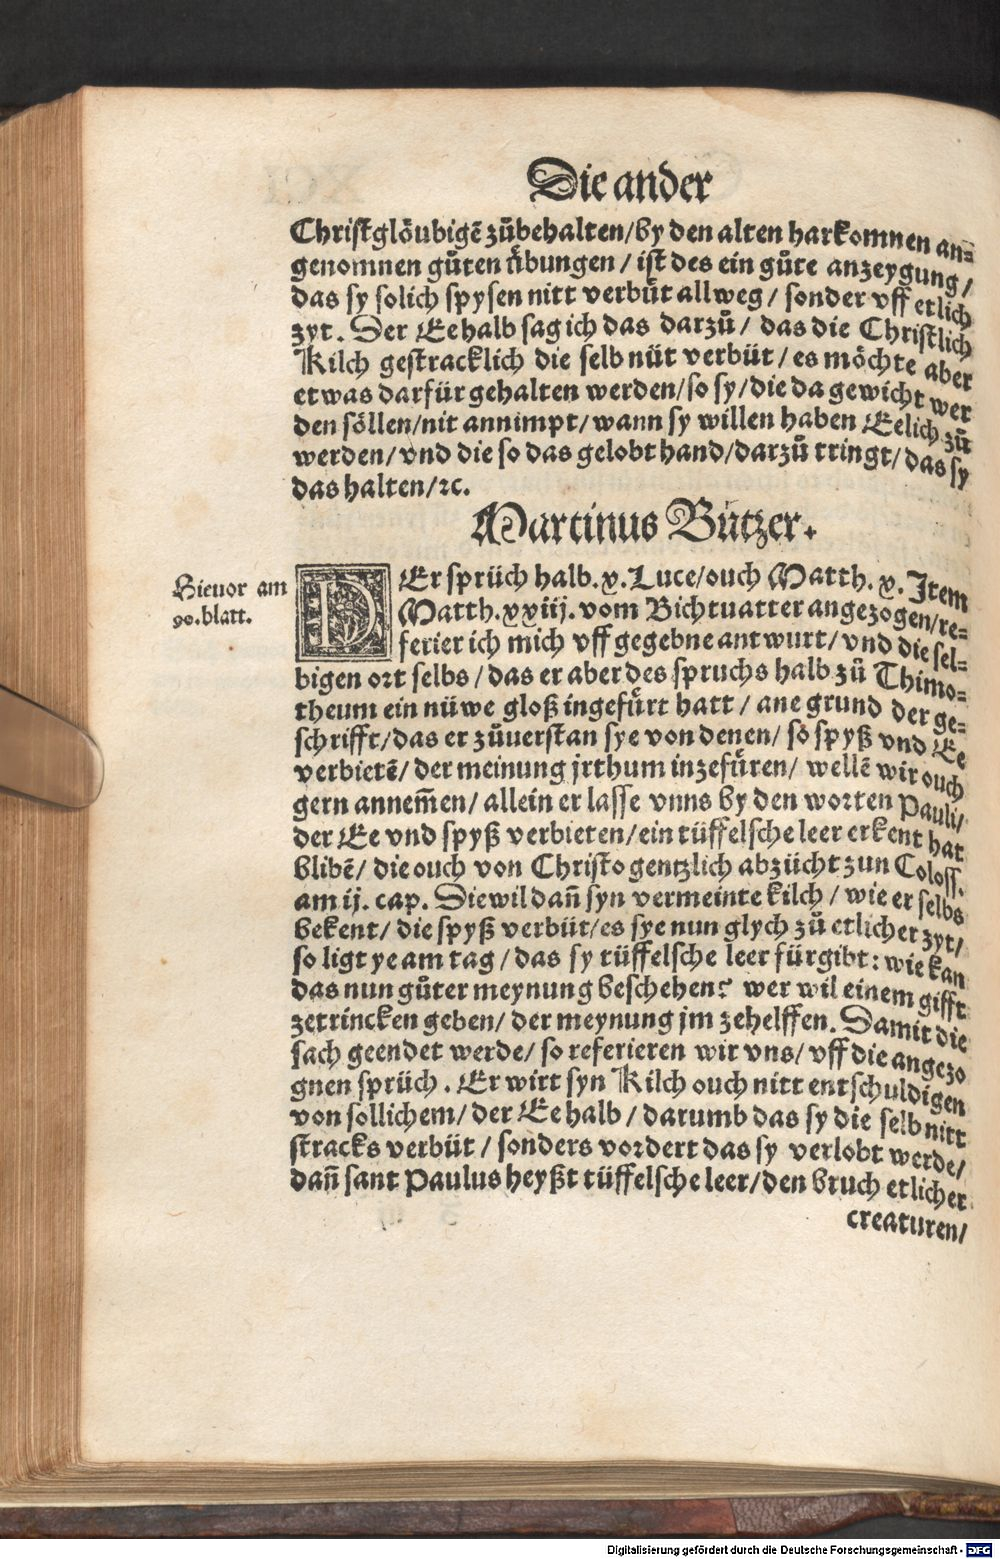 Die ander
Christglöubigē zůbehalten/by den alten harkomnen an=
genomnen gůten ůbungen / ist des ein gůte anzeygung /
das sy solich spysen nitt verbüt allweg / sonder vff etlich
zyt. Der Ee halb sag ich das darzů / das die Christlich
Kilch gestracklich die selb nüt verbüt / es möchte aber
etwas darfür gehalten werden/so sy/die da gewicht wer
den söllen/nit annimpt/wann sy willen haben Eelich zů
werden/vnd die so das gelobt hand/darzů tringt/das sy
das halten/ꝛc.
Martinus Bützer.
Hieuor am
90.blatt.
DEr sprüch halb.x.Luce/ouch Matth.x.Item
Matth.xxiij.vom Bichtuatter angezogen/re=
ferier ich mich vff gegebne antwurt/vnd die sel=
bigen ort selbs / das er aber des spruchs halb zů Thimo=
theum ein nüwe gloß ingefürt hatt / ane grund der ge=
schrifft/das er zůuerstan sye von denen/ so spyß vnd Ee
verbietē/ der meinung jrthum inzefüren/ wellē wir ouch
gern annem̄en/ allein er lasse vnns by den worten Pauli/
der Ee vnd spyß verbieten/ein tüffelsche leer erkent hat
blibē/ die ouch von Christo gentzlich abzücht zun Coloss.
am ij. cap. Diewil dan̄ syn vermeinte kilch / wie er selbs
bekent/ die spyß verbüt/es sye nun glych zů etlicher zyt/
so ligt ye am tag / das sy tüffelsche leer fürgibt: wie kan
das nun gůter meynung beschehen? wer wil einem gifft
zetrincken geben/ der meynung jm zehelffen. Damit die
sach geendet werde/ so referieren wir vns/ vff die angezo
gnen sprüch. Er wirt syn Kilch ouch nitt entschuldigen
von sollichem/ der Ee halb / darumb das sy die selb nitt
stracks verbüt / sonders vordert das sy verlobt werde/
dan̄ sant Paulus heyßt tüffelsche leer/den bruch etlicher
creaturen/
Digitalisierung gefördert durch die Deutsche Forschungsgemeinschaft - DFG